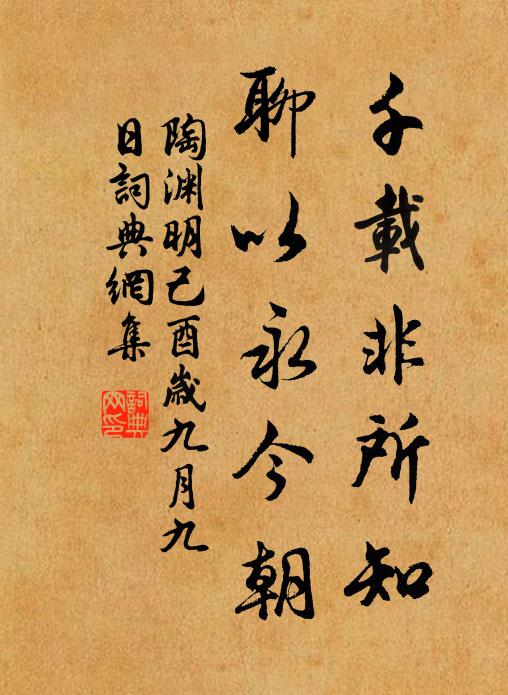 千載非所知
聊以永今朝
陶渊明己酉歳九月九
日詞典網集
詞典网印